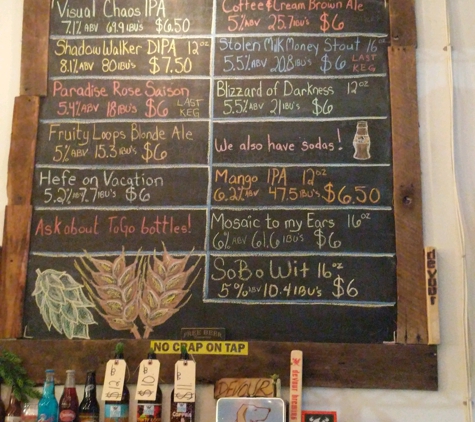 Visual Chaos IPA
7.1% ABV 69.9 IBU's $6.50
ShadowWalker DIPA 12oz
8.1% ABV 80 IBU's $7.50
Paradise Rose Saison
5.4% ABV 18 IBU's $6 LAST KEG
Fruity Loops Blonde Ale
5% ABV 15.3 IBU's $6
Hefe on Vacation
5.2% 7.7 IBU's $6
Ask about ToGo bottles!
Coffee & Cream Brown Ale
5% ABV 25.7 IBU's $6
Stolen Milk Money Stout 16oz
5.5% ABV 20.8 IBU's $6 LAST KEG
Blizzard of Darkness 12oz
5.5% ABV 21 IBU's $6
We also have sodas!
Mango IPA 12oz
6.2% ABV 47.5 IBU's $6.50
Mosaic to my Ears 16oz
6% ABV 61.6 IBU's $6
SoBo Wit 16oz
5% ABV 10.4 IBU's $6
FREE BEER
NO CRAP ON TAP
DEVOUR